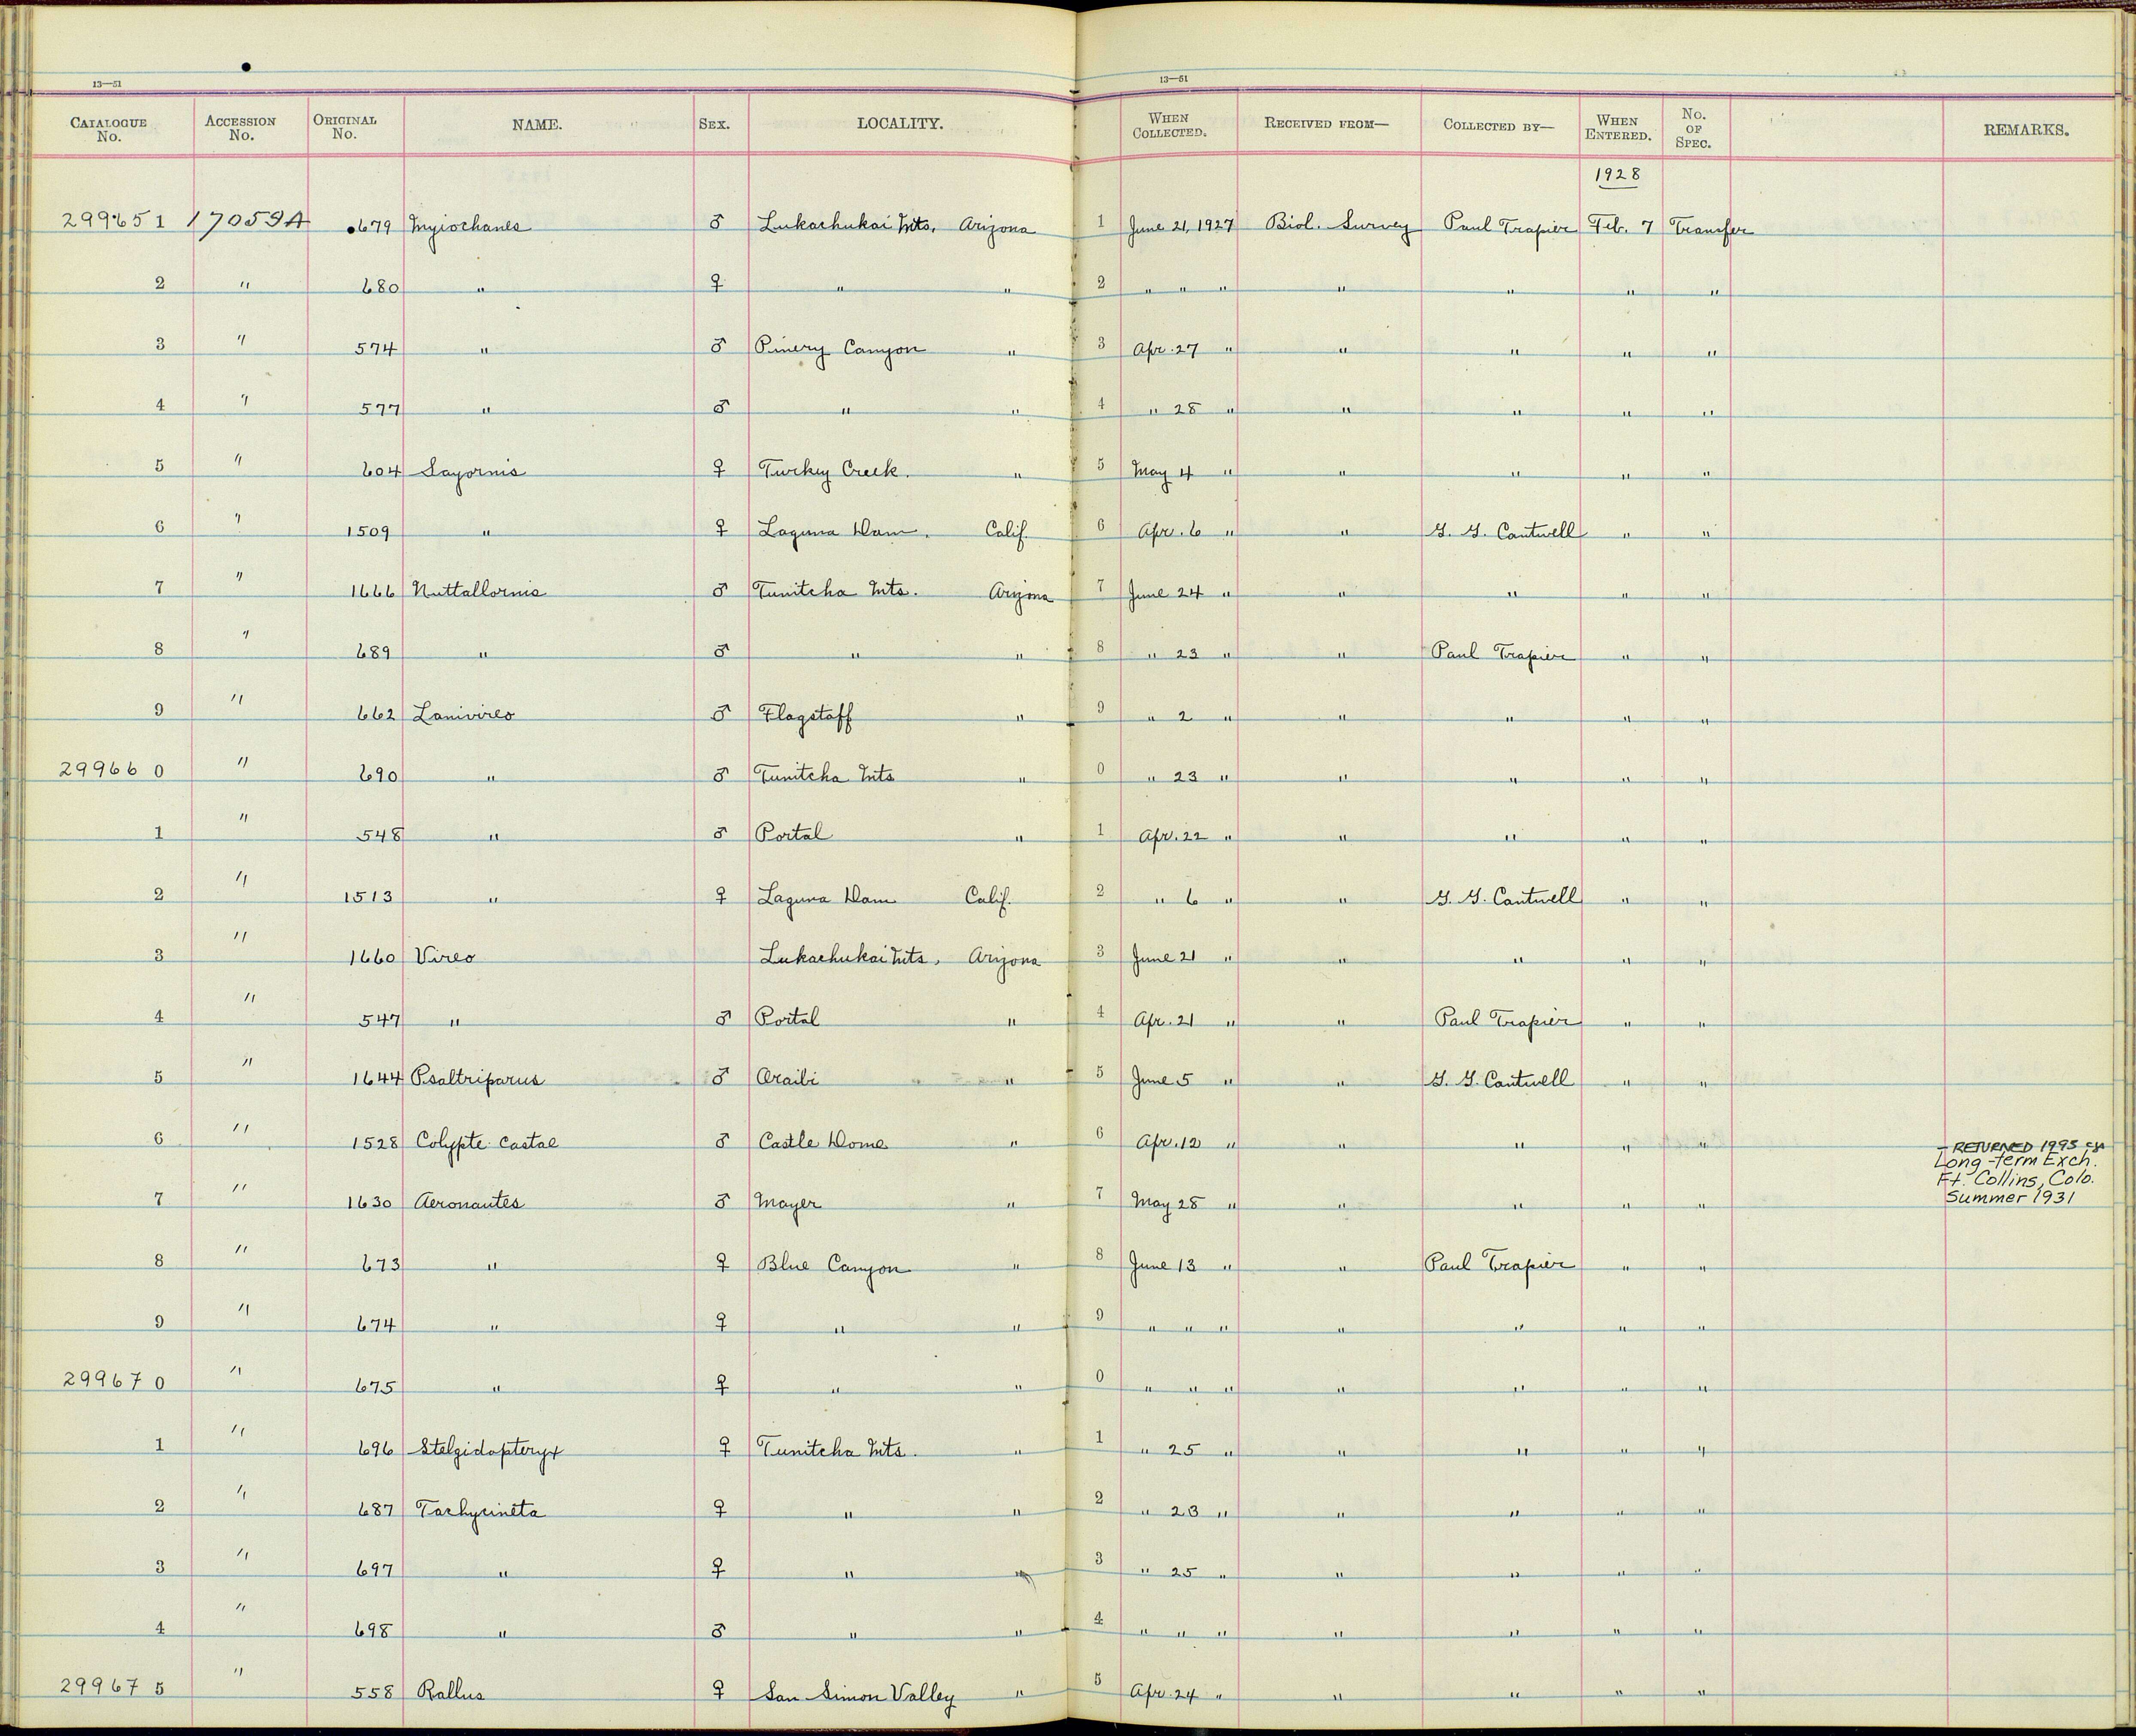 13—51
13—51
CATALOGUE No. ACCESSION No. ORIGINAL No. NAME. SEX. LOCALITY. WHEN COLLECTED. RECEIVED FROM— COLLECTED BY— WHEN ENTERED. NO. OF SPEC. REMARKS.
1928
299651 17059A 679 Myiochanes ♂ Lukachukai Mts. Arizona 1 June 21, 1927 Biol. Survey Paul Trapier Feb. 7 Transfer
2 " 680 " ♀ " " 2 " " " " " " "
3 " 574 " ♂ Pinery Canyon " 3 Apr. 27 " " " " "
4 " 577 " ♂ " " 4 " 28 " " " " "
5 " 604 Sayornis ♀ Turkey Creek. " 5 May 4 " " " " "
6 " 1509 " ♀ Laguna Dam. Calif. 6 Apr. 6 " " G. G. Cantwell " "
7 " 1666 Nuttallornis ♂ Tunitcha Mts. Arizona 7 June 24 " " " " "
8 " 689 " ♂ " " 8 " 23 " " Paul Trapier " "
9 " 662 Lanivireo ♂ Flagstaff " 9 " 2 " " " " "
299660 " 690 " ♂ Tunitcha Mts " 0 " 23 " " " " "
1 " 548 " ♂ Portal " 1 Apr. 22 " " " " "
2 " 1513 " ♀ Laguna Dam Calif. 2 " 6 " " G. G. Cantwell " "
3 " 1660 Vireo Lukachukai Mts. Arizona 3 June 21 " " " " "
4 " 547 " ♂ Portal " 4 Apr. 21 " " Paul Trapier " "
5 " 1644 Psaltriparus ♂ Oraibi " 5 June 5 " " G. G. Cantwell " "
6 " 1528 Calypte costae ♂ Castle Dome " 6 Apr. 12 " " " " " – RETURNED 1995
Long-term Exch.
Ft. Collins, Colo.
Summer 1931
7 " 1630 Aeronautes ♂ Mayer " 7 May 28 " " " " "
8 " 673 " ♀ Blue Canyon " 8 June 13 " " Paul Trapier " "
9 " 674 " ♀ " " 9 " " " " " " "
299670 " 675 " ♀ " " 0 " " " " " " "
1 " 696 Stelgidopteryx ♀ Tunitcha Mts. " 1 " 25 " " " " "
2 " 687 Tachycineta ♀ " " 2 " 23 " " " " "
3 " 697 " ♀ " " 3 " 25 " " " " "
4 " 698 " ♂ " " 4 " " " " " " "
299675 " 558 Rallus ♀ San Simon Valley " 5 Apr. 24 " " " " "